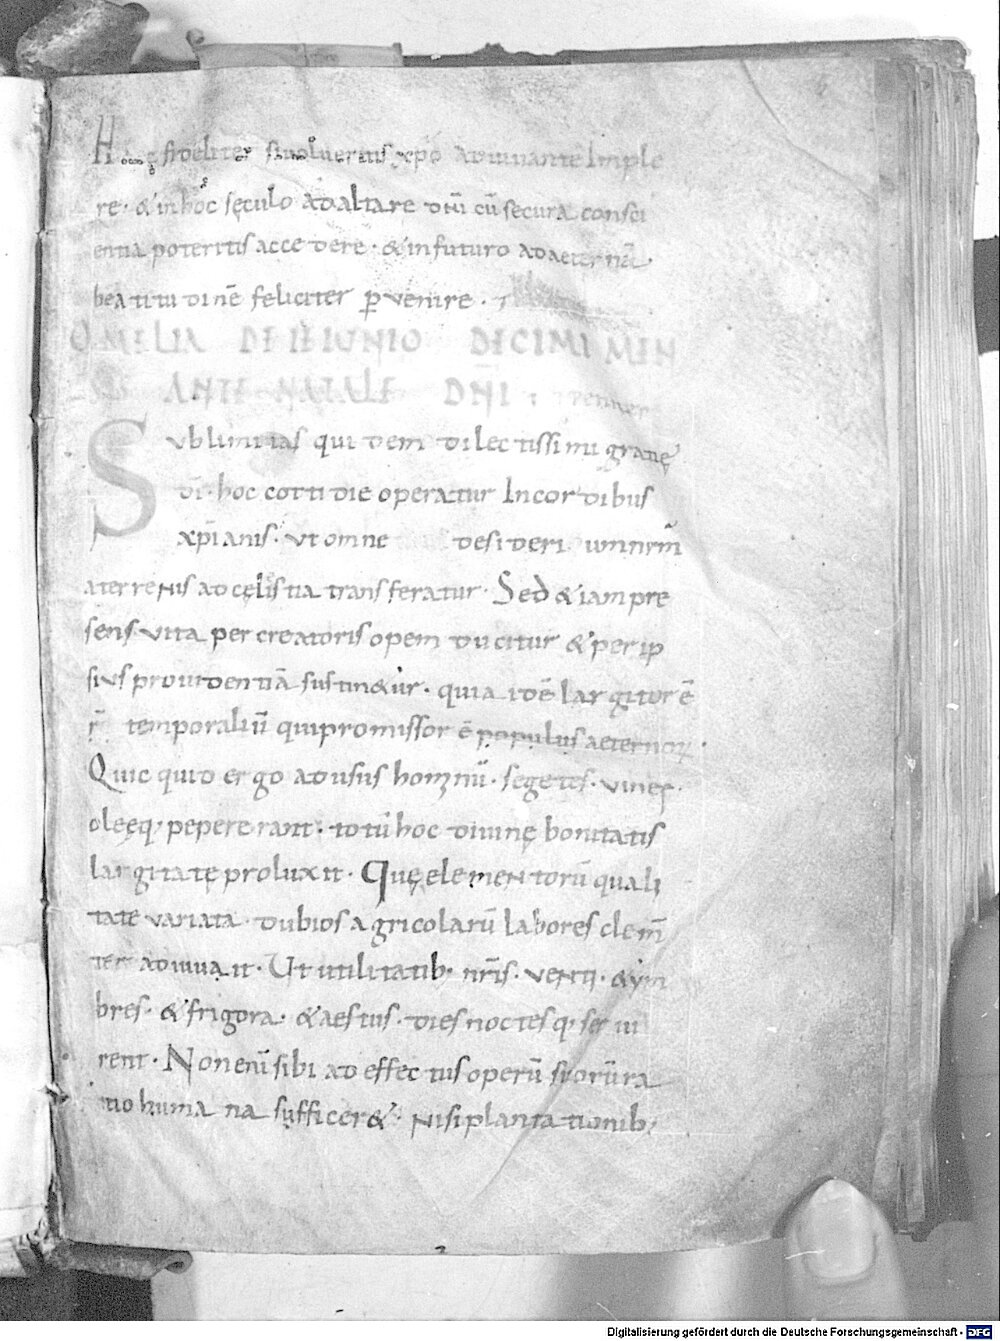 Hęc fideliter si volueritis xp̄o adiuuante Imple
re· & in hoc sęculo ad altare dn̄i cū secura consci
entia poteritis accedere· & in futuro ad aeternā
beatitudinē feliciter ꝑvenire·
OMELIA DE IEIUNIO DECIMI MEN
SIS ANTE NATALE DN̄I
Sublimitas quidem dilectissimi gratię
dī· hoc cottidie operatur In cordibus
xp̄ianis· ut omne desiderium nr̄m
a terrenis ad cęlestia transferatur· Sed & iam pre
sens vita per creatoris opem ducitur & per ip
sius prouidentiā sustin&ur· quia idē largitor ē
r̄ temporaliū qui promissor ē populus aeternorꝝ·
Quicquid ergo ad usus hominū· segetes· vineę·
oleęq; pepererant· totū hoc divinę bonitatis
largitate proluxit· Quę elementorū quali
tate variata· dubios agricolarū labores clem̄
ter adiuuait· Ut utilitatib; nr̄is· venti· & ym
bres· & frigora· & aestus· dies noctesq; ser ui
rent· Non enī sibi ad effectus operū suorū ra
tio humana suffceret& nisi plantationib;